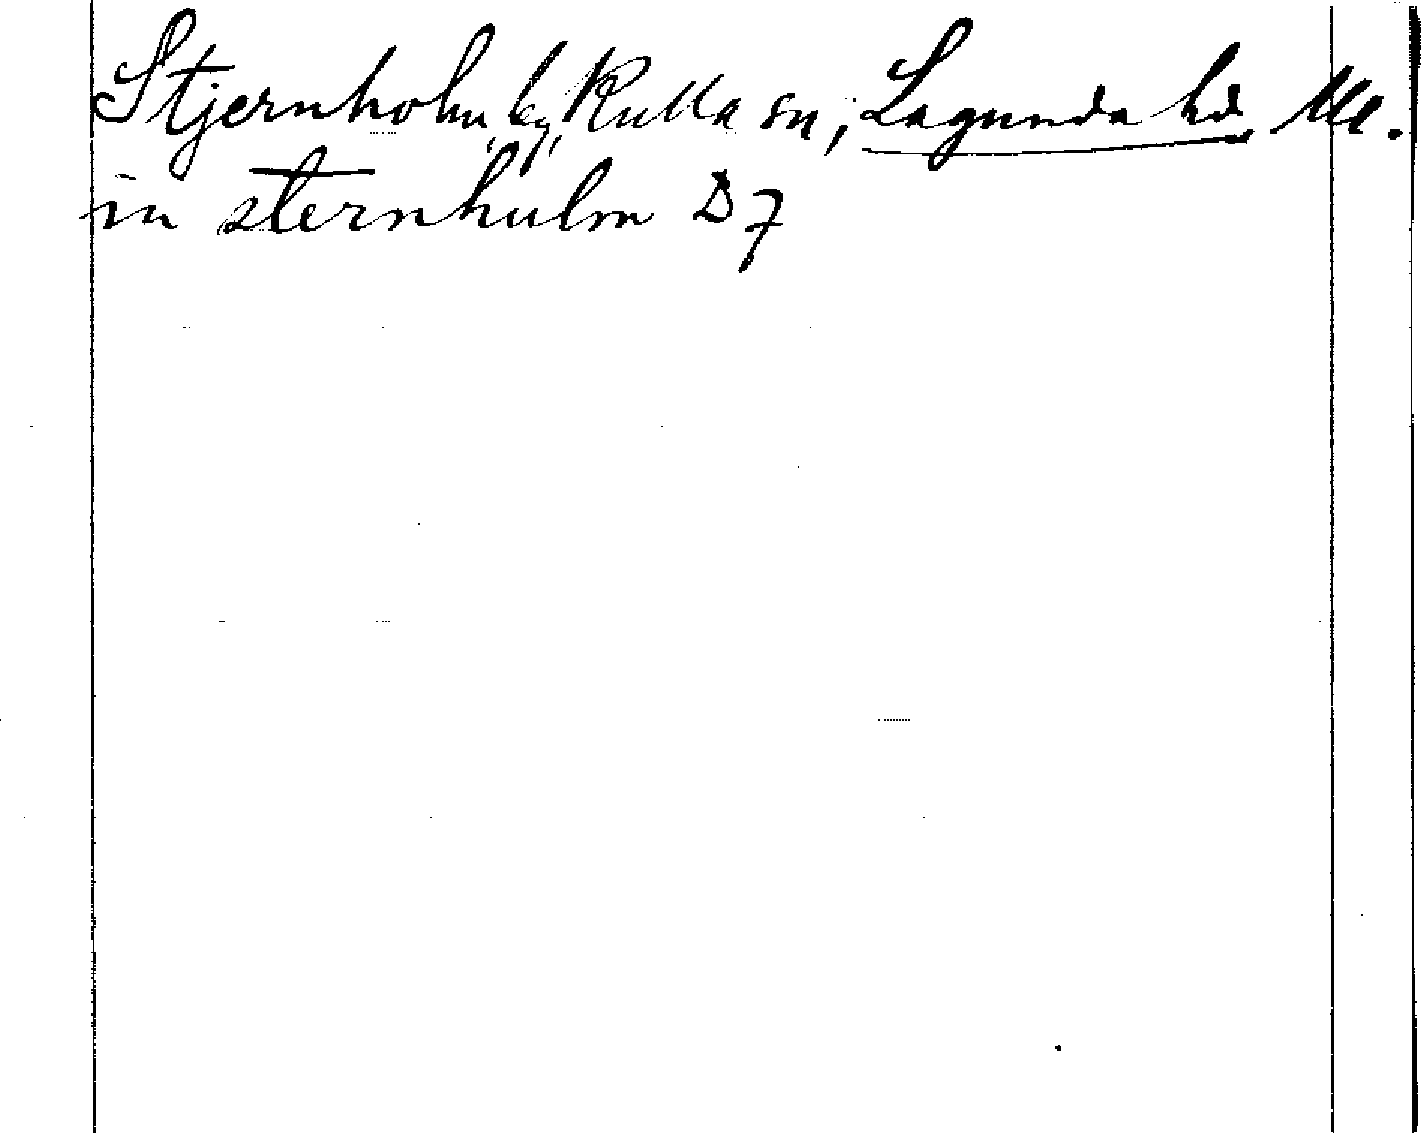 Stjernholm, by, Kulla sn, Lagunda hd. Ul.
in sternhulm D 7